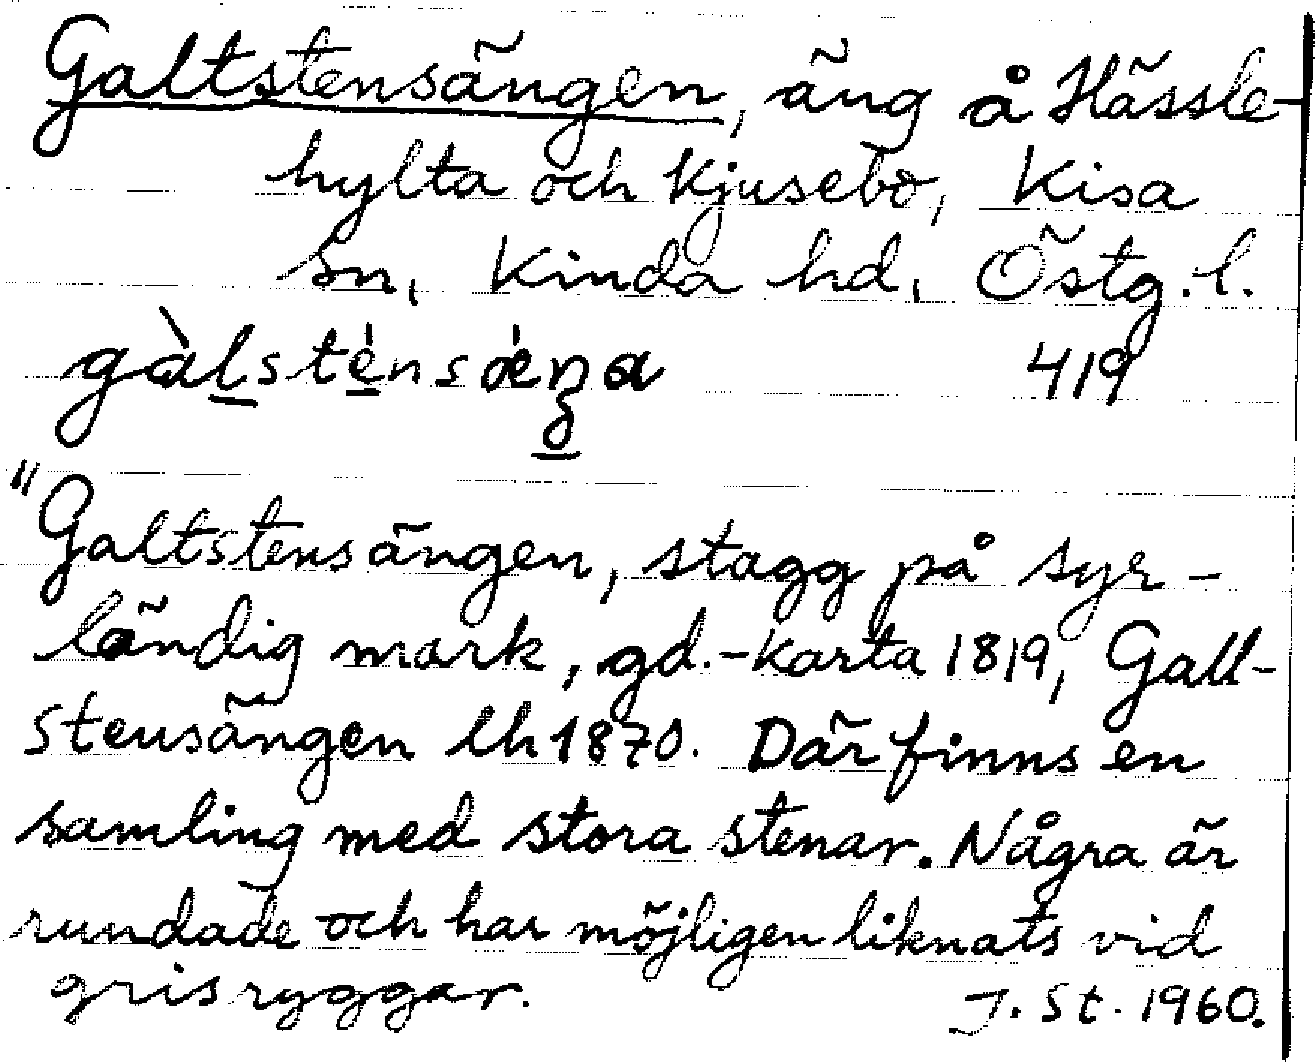 Galtstensängen, äng å Hässle-
hylta och Kjusebo, Kisa
sn, Kinda hd, Östg. l.
gàlsténsǽŋa 419
"Galtstensängen, stagg på syr-
ländig mark, gd.-karta 1819, Gall-
stensängen lh 1870. Där finns en
samling med stora stenar. Några är
rundade och har möjligen liknats vid
grisryggar. J. St. 1960.